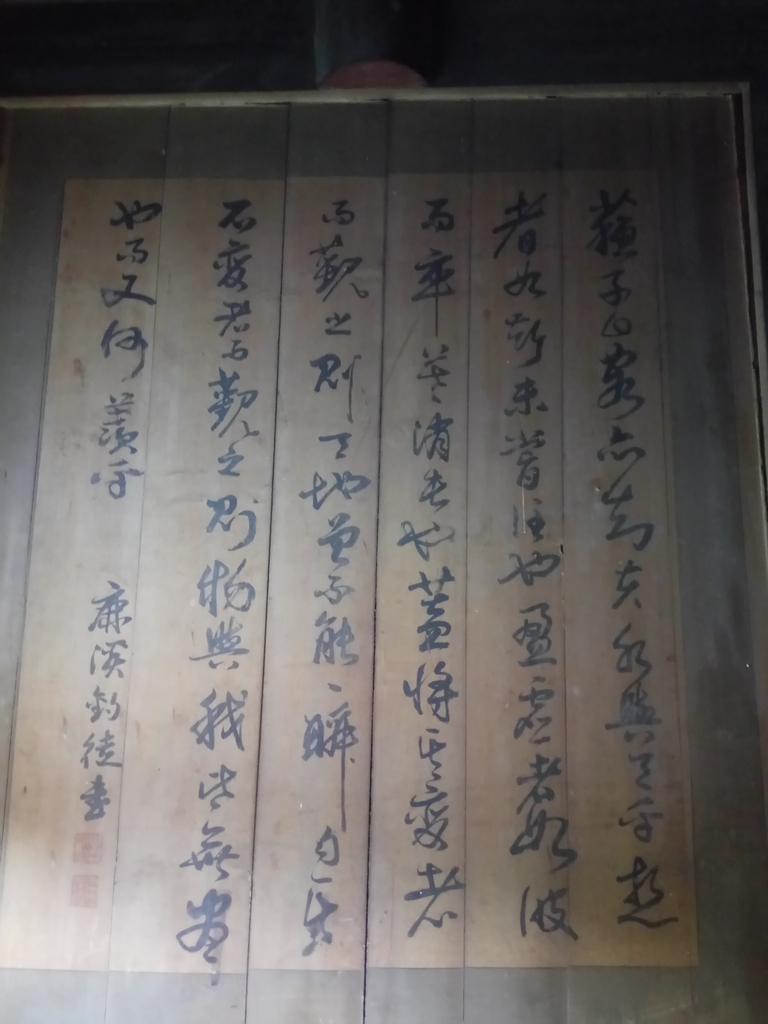 蘓子曰客亦知夫水與月乎逝
者如斯未嘗往也盈虛者如彼
而卒莫消長也蓋將其變者
而觀之則天地曾不能一瞬自其
不變者而觀之則物與我皆無盡
也而又何羨乎
廉溪釣徒書